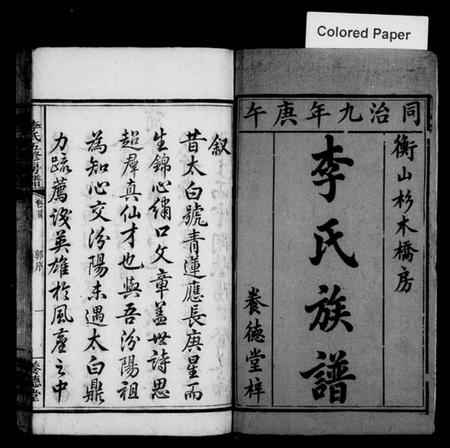 Colored Paper
同治九年庚午
衡山杉木橋房
李氏族譜
養德堂梓
叙
昔太白號青蓮應長庚星而
生錦心繡口文章蓋世詩思
超羣真仙才也與吾汾陽祖
為知心交汾陽未遇太白鼎
力疏薦識英雄於風塵之中
李氏五修房譜
卷首
郭序
一
養德堂